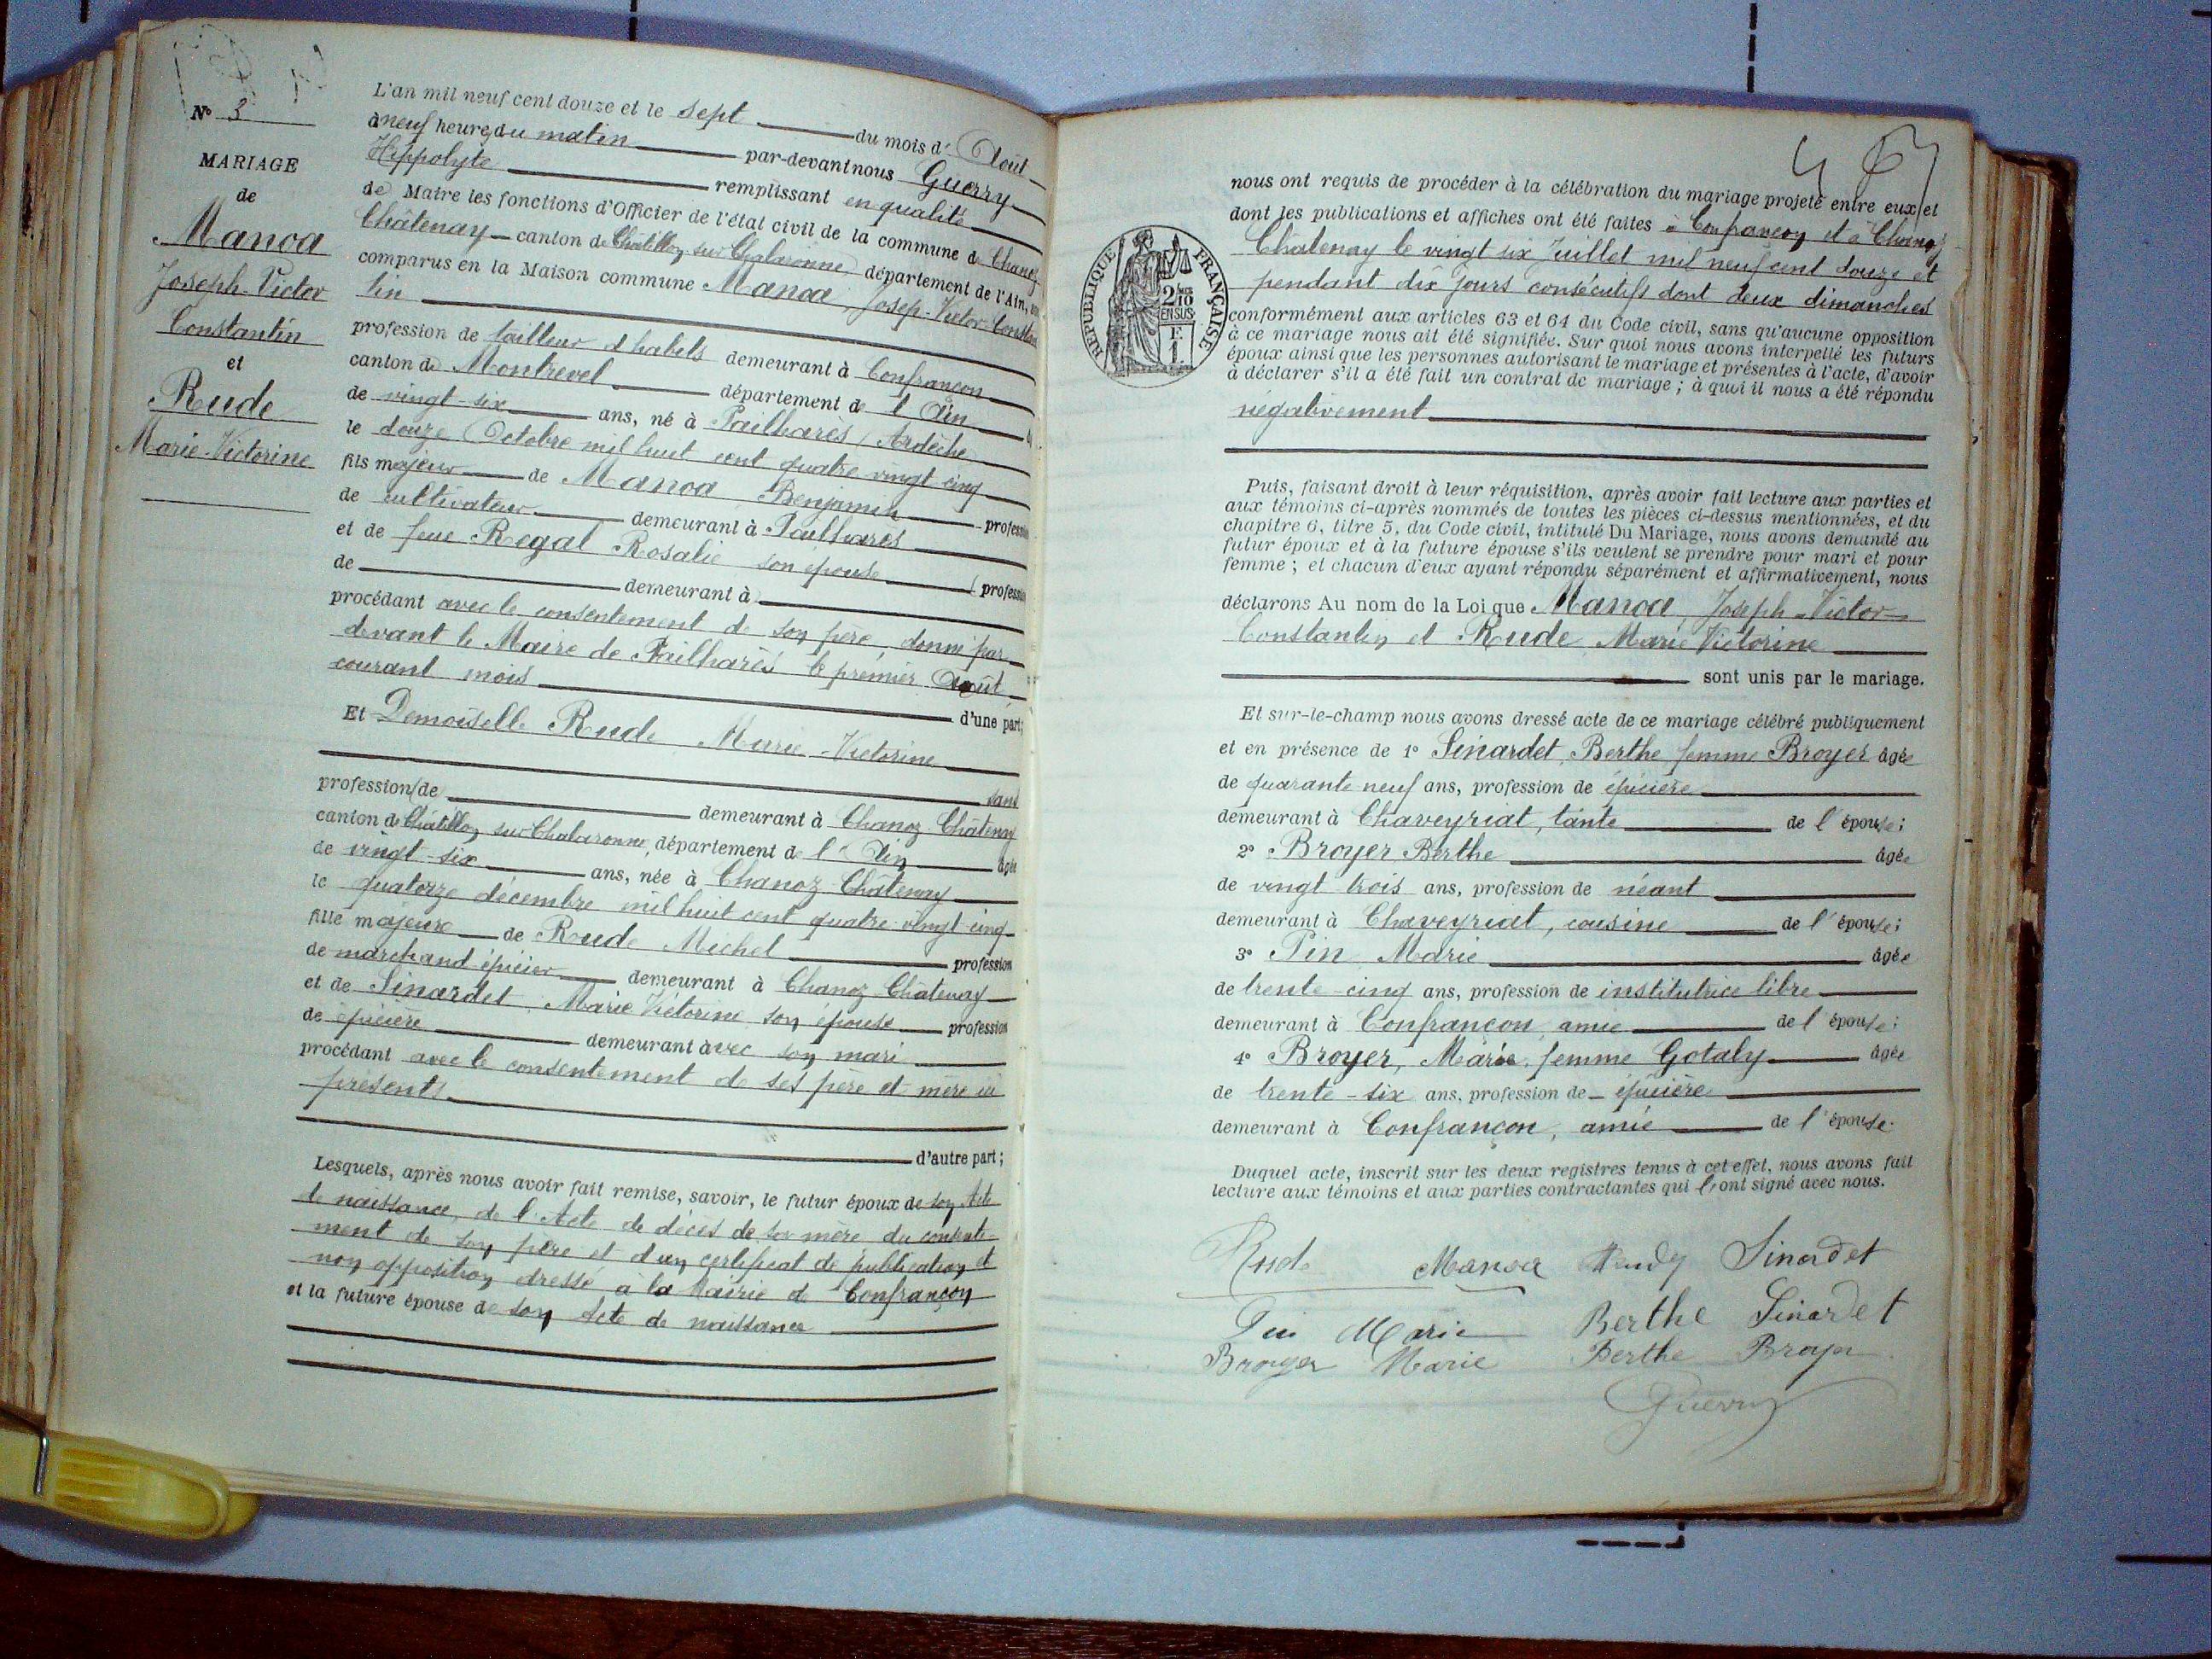 N° 3
MARIAGE
de
Manoa
Joseph-Victor
Constantin
et
Rude
Marie-Victorine
L'an mil neuf cent douze et le sept du mois d' Août
à neuf heures du matin par-devant nous Guerry
Hippolyte remplissant en qualité
de Maire les fonctions d'Officier de l'état civil de la commune de Chanoz
Châtenay canton de Châtillon sur Chalaronne département de l'Ain,
comparus en la Maison commune Manoa Josep-Victor Constan
tin
profession de tailleur d'habits demeurant à Confrançon
canton de Montrevel département de l'Ain
de vingt-six ans, né à Pailharès, Ardèche
le douze Octobre mil huit cent quatre vingt cinq
fils majeur de Manoa Benjamin profession
de cultivateur demeurant à Pailharès
et de feue Regal Rosalie son épouse profession
de demeurant à
procédant avec le consentement de son père, donné par
devant le Maire de Pailharès le premier Août
courant mois
d'une part;
Et Demoiselle Rude Marie-Victorine
sans
profession de demeurant à Chanoz Châtenay
canton de Châtillon sur Chalaronne, département de l'Ain âgée
de vingt-six ans, née à Chanoz Châtenay
le quatorze décembre mil huit cent quatre vingt cinq
fille majeure de Rude Michel profession
de marchand épicier demeurant à Chanoz Châtenay
et de Sinardet Marie Victorine son épouse profession
de épicière demeurant avec son mari
procédant avec le consentement de ses père et mère ici
présents
d'autre part;
Lesquels, après nous avoir fait remise, savoir, le futur époux de son Acte
de naissance, de l'Acte de décès de sa mère du consente-
ment de son père et d'un certificat de publication et
non opposition dressé à la Mairie de Confrançon
et la future épouse de son Acte de naissance
nous ont requis de procéder à la célébration du mariage projeté entre eux et
dont les publications et affiches ont été faites à Confrançon et à Chanoz
Châtenay le vingt six Juillet mil neuf cent douze et
pendant dix jours consécutifs dont deux dimanches
RÉPUBLIQUE FRANÇAISE
2/10
EN SUS
F.
1.
conformément aux articles 63 et 64 du Code civil, sans qu'aucune opposition
à ce mariage nous ait été signifiée. Sur quoi nous avons interpellé les futurs
époux ainsi que les personnes autorisant le mariage et présentes à l'acte, d'avoir
à déclarer s'il a été fait un contrat de mariage; à quoi il nous a été répondu
négativement
Puis, faisant droit à leur réquisition, après avoir fait lecture aux parties et
aux témoins ci-après nommés de toutes les pièces ci-dessus mentionnées, et du
chapitre 6, titre 5, du Code civil, intitulé Du Mariage, nous avons demandé au
futur époux et à la future épouse s'ils veulent se prendre pour mari et pour
femme; et chacun d'eux ayant répondu séparément et affirmativement, nous
déclarons Au nom de la Loi que Manoa, Joseph-Victor
Constantin et Rude Marie Victorine
sont unis par le mariage.
Et sur-le-champ nous avons dressé acte de ce mariage célébré publiquement
et en présence de 1° Sinardet, Berthe femme Broyer âgée
de quarante neuf ans, profession de épicière
demeurant à Chaveyriat, tante de l'épouse;
2° Broyer Berthe âgée
de vingt trois ans, profession de néant
demeurant à Chaveyriat, cousine de l'épouse;
3° Pin Marie âgée
de trente-cinq ans, profession de institutrice libre
demeurant à Confrançon amie de l'épouse;
4° Broyer, Marie, femme Gotaly âgée
de trente-six ans, profession de épicière
demeurant à Confrançon, amie de l'épouse.
Duquel acte, inscrit sur les deux registres tenus à cet effet, nous avons fait
lecture aux témoins et aux parties contractantes qui l'ont signé avec nous.
Rude Manoa Sinardet
Pin Marie Berthe Sinardet
Broyer Marie Berthe Broyer
Guerry